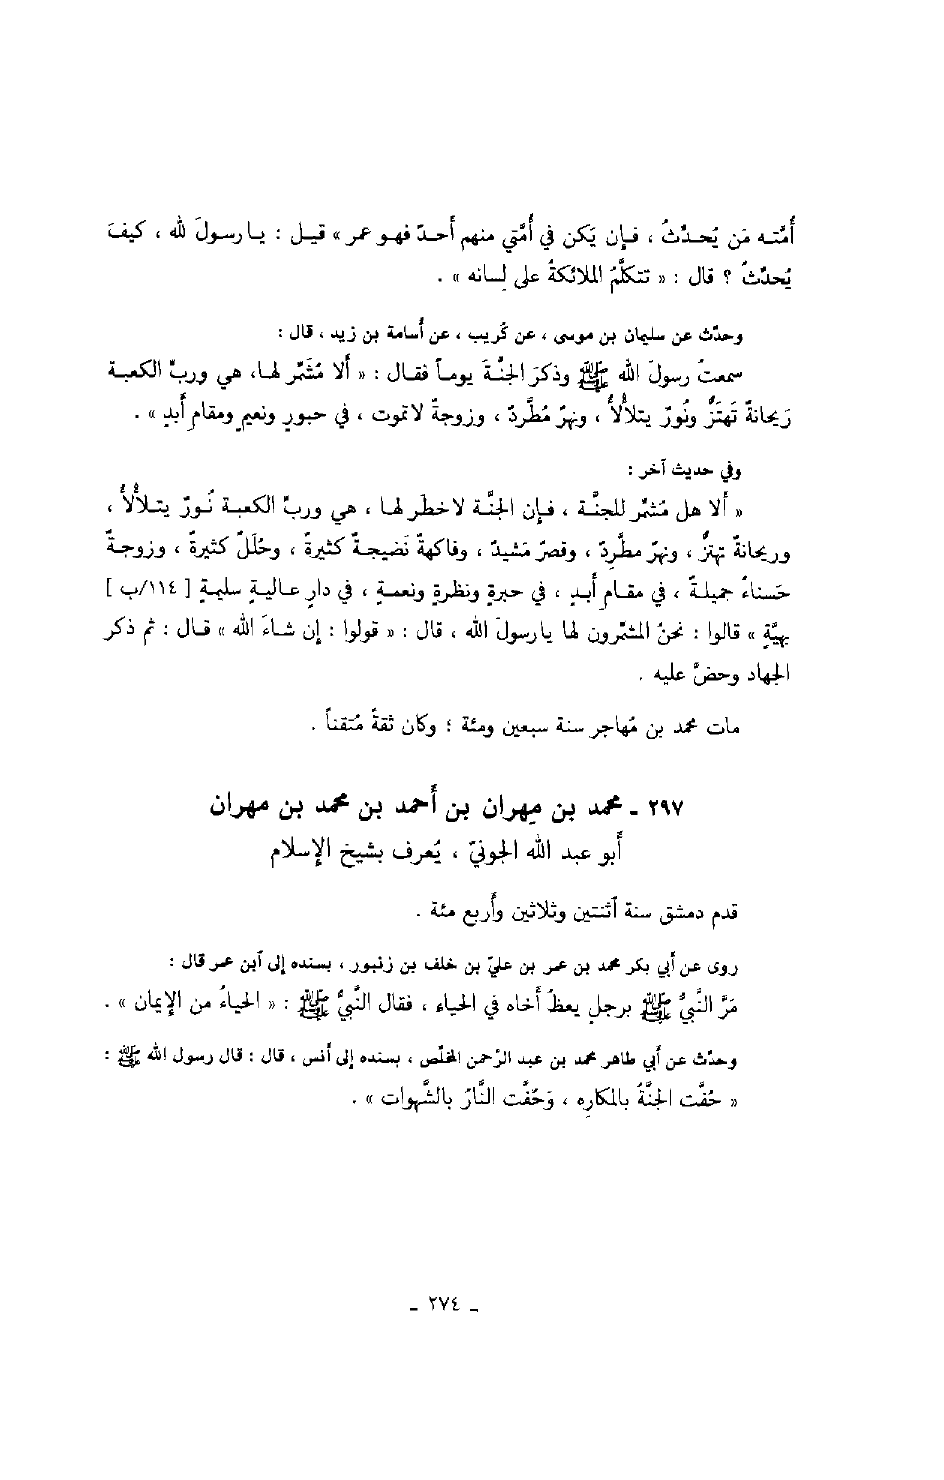 أُمّته مَن يُحدَّثُ ، فإن يَكن في أُمَّتي منهم أَحدٌ فهو عمر » قيل : يا رسولَ لله ، كيفَ
يُحدَّثُ ؟ قال : « تتكلَّمُ الملائكةُ على لسانه » .
وحدَّث عن سليمان بن موسى ، عن كُريب ، عن أُسامة بن زيد ، قال :
سمعتُ رسولَ الله ﷺ وذكرَ الجنَّةَ يوماً فقال : « ألا مُشَمِّر لها، هي وربِّ الكعبة
رَيحانةٌ تَهتَزُّ ونُورٌ يتلألأُ ، ونهرٌ مُطَّردٌ ، وزوجةٌ لا تموت ، في حبورٍ ونعيمٍ ومقام أَبدٍ » .
وفي حديث آخر :
« ألا هل مُشمِّر للجنَّة ، فإن الجنَّة لا خطَر لها ، هي وربِّ الكعبة نُورٌ يتلألأُ ،
وريحانةٌ تهتزُّ ، ونهرٌ مطَّرِدٌ ، وقصرٌ مَشيدٌ ، وفاكهةٌ نَضيجةٌ كثيرةٌ ، وحُلَلٌ كثيرةٌ ، وزوجةٌ
حَسناءُ جميلةٌ ، في مقام أَبدٍ ، في حبرةٍ ونظرةٍ ونعمةٍ ، في دارٍ عاليةٍ سليمةٍ [ ١١٤/ب ]
بهيَّةٍ » قالوا : نحنُ المشمِّرون لها يا رسولَ الله ، قال : « قولوا : إن شاءَ الله » قال : ثم ذكر
الجهاد وحضَّ عليه .
مات محمد بن مُهاجر سنة سبعين ومئة ؛ وكان ثقةً مُتقناً .
٢٩٧ ـ محمد بن مِهران بن أَحمد بن محمد بن مهران
أَبو عبد الله الجونيّ ، يُعرف بشيخ الإسلام
قدم دمشق سنة ٱثنتين وثلاثين وأَربع مئة .
روى عن أَبي بكر محمد بن عمر بن عليّ بن خلف بن زنبور ، بسنده إلى ٱبن عمر قال :
مَرَّ النَّبيُّ ﷺ برجلٍ يعظُ أَخاه في الحياء ، فقال النَّبيُّ ﷺ : « الحياءُ من الإيمان » .
وحدَّث عن أَبي طاهر محمد بن عبد الرَّحمن المخلّص ، بسنده إلى أَنس ، قال : قال رسول الله ﷺ :
« حُفَّت الجنَّةُ بالمكارِه ، وَحُفَّت النَّارُ بالشَّهوات » .
ـ ٢٧٤ ـ